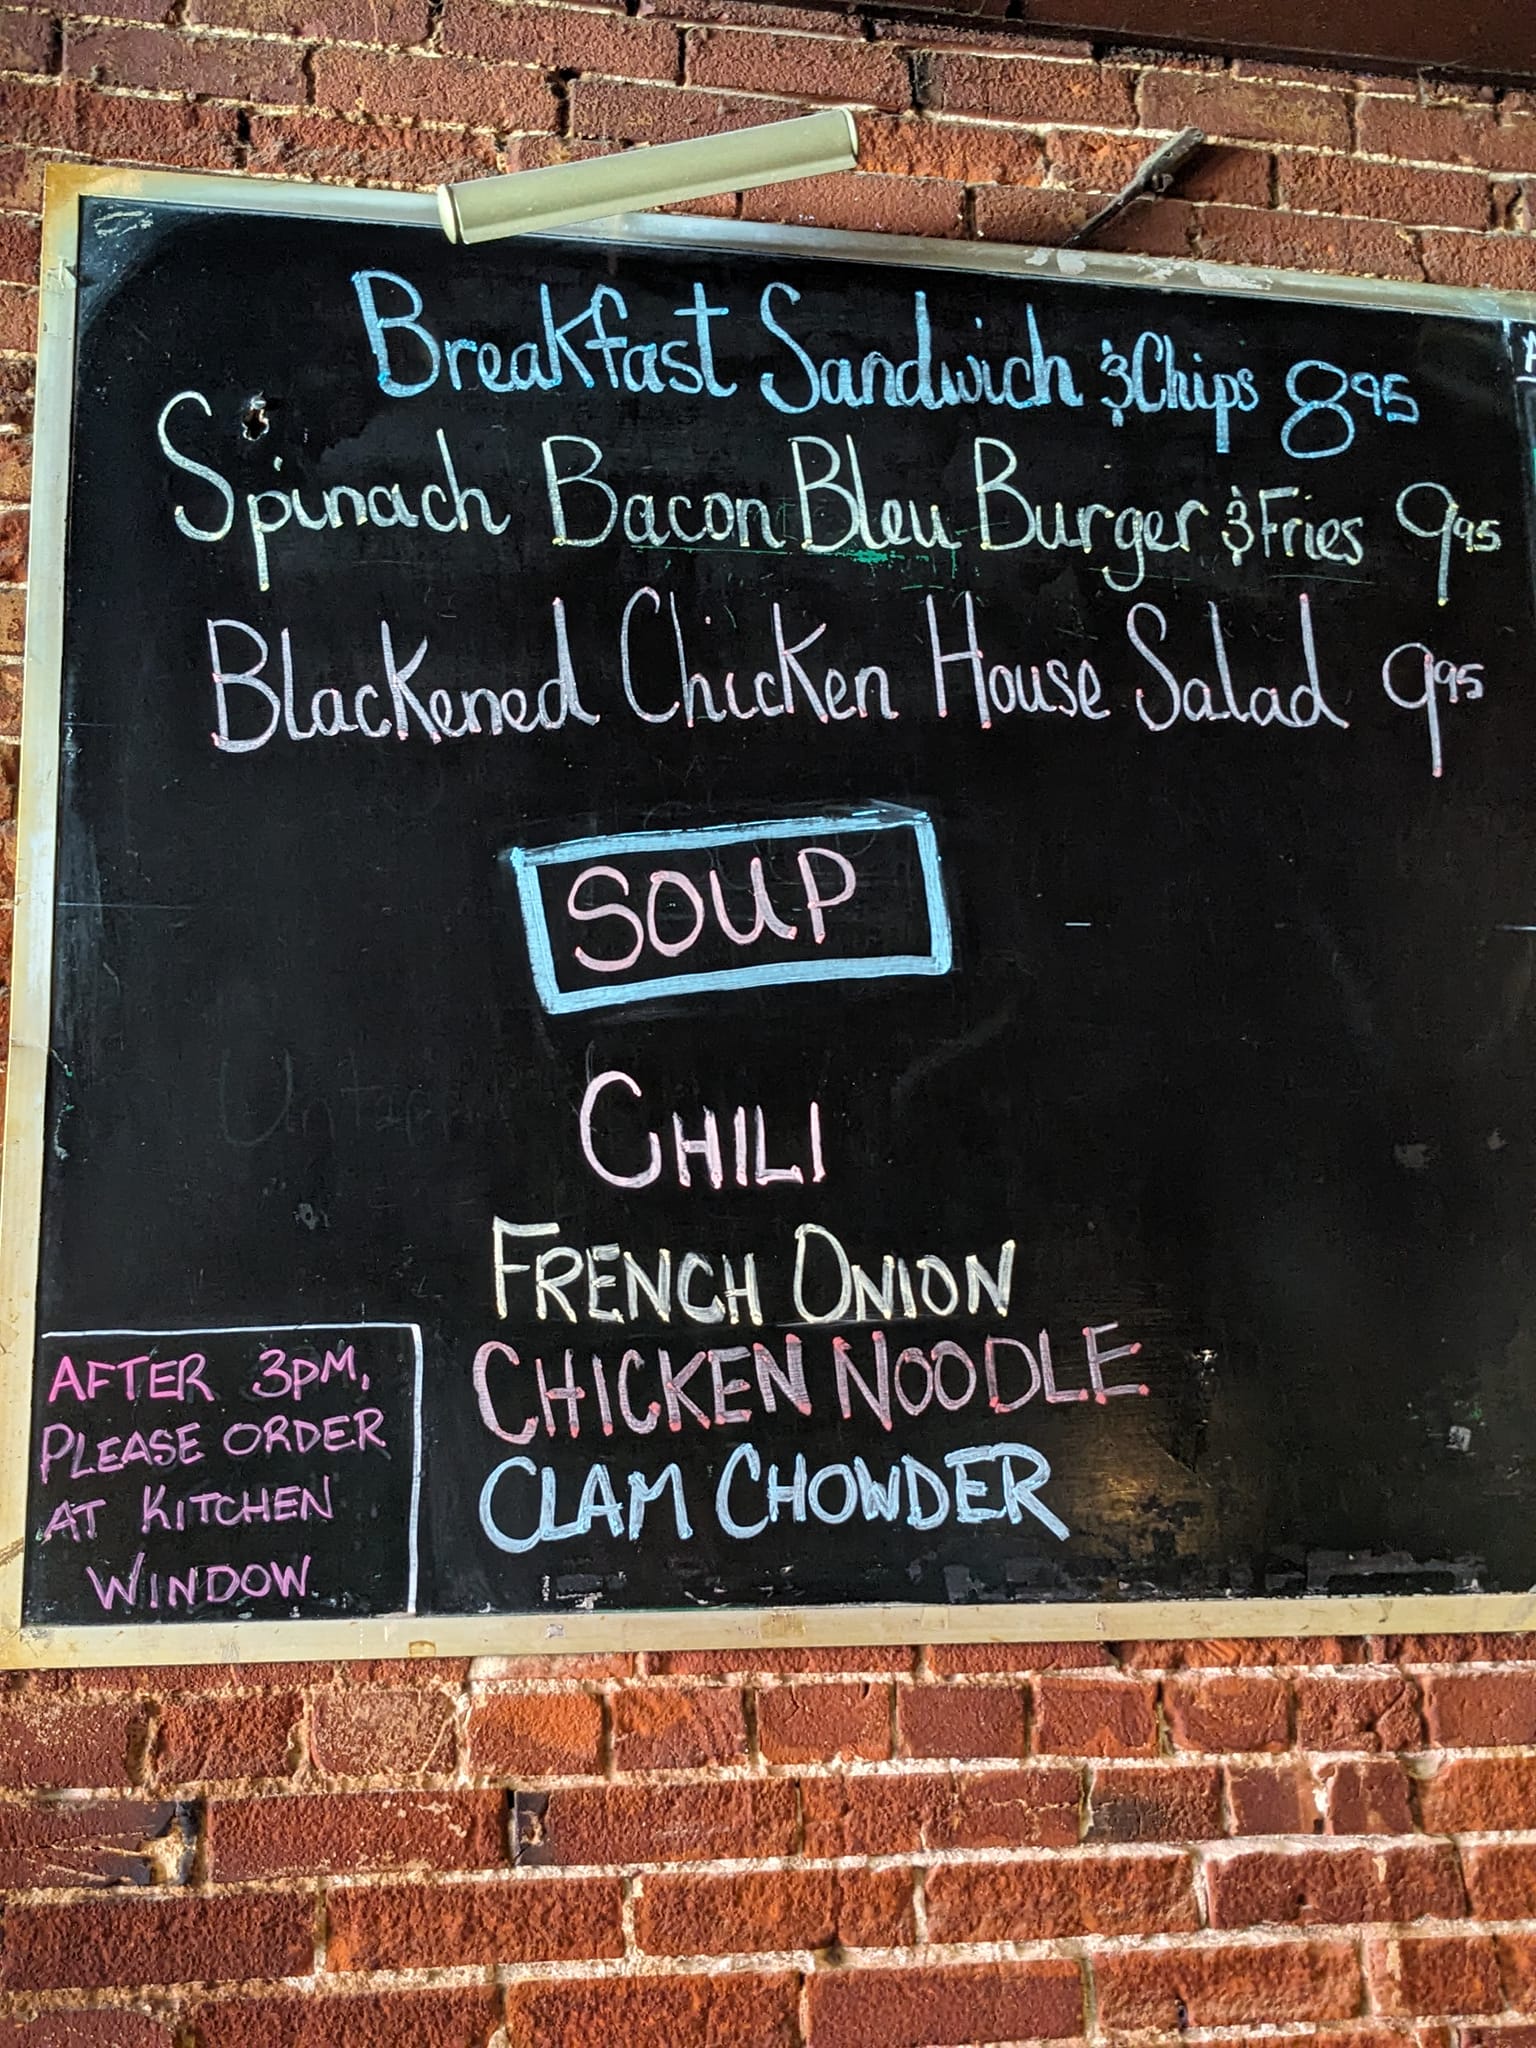 Breakfast Sandwich & Chips 895
Spinach Bacon Bleu Burger & Fries 995
Blackened Chicken House Salad 995
SOUP
CHILI
FRENCH ONION
CHICKEN NOODLE
CLAM CHOWDER
AFTER 3PM,
PLEASE ORDER
AT KITCHEN
WINDOW